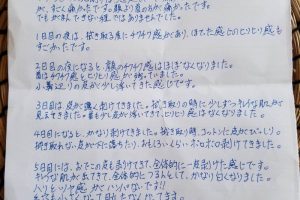 が、すごく痛かったです。顔より首の方が痛かったです。
でもがまんできない程ではありませんでした。
1日目の夜は、拭き取る度にチクチク感があり、ほてった感じのヒリヒリ感も
すごかったです。
2日目の夜になると、顔のチクチク感はほぼなくなりました。
首はチクチク、ヒリヒリ感が残っていました。
小鼻辺りの皮が少し浮いてきた感じです。
3日目は皮が薄く剥けてきました。拭き取りの時に少しずつキレイな肌が
見えてきました。首も少し皮が浮いてきて、ヒリヒリ感はなくなりました。
4日目になると、かなり剥けてきました。拭き取り時、コットンに皮がびっしり。
拭き取れない皮が下に落ちたり、おもしろいくらいボロボロ剥けてきました。
5日目には、おでこの皮も剥けてきて、全体的に一皮剥けた感じです。
キレイな肌が出てきて、全体的につるんとして、かなり白くなりました。
ハリとツヤ感がハンパないです!!